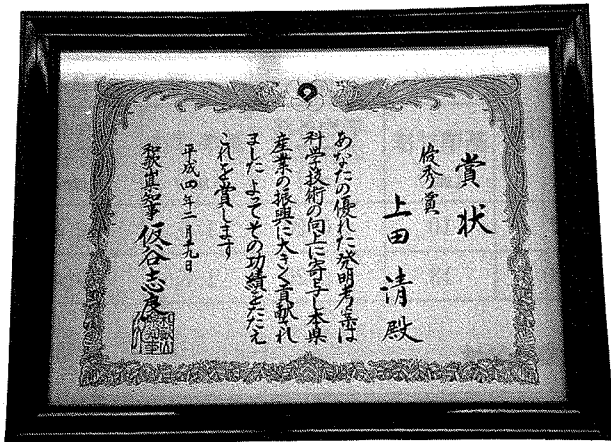 賞状
優秀賞
上田清殿
あなたの優れた発明考案は
科学技術の向上に寄与し本県
産業の振興に大きく貢献され
ました よってその功績をたたえ
これを賞します
平成四年二月十九日
和歌山県知事 仮谷志良